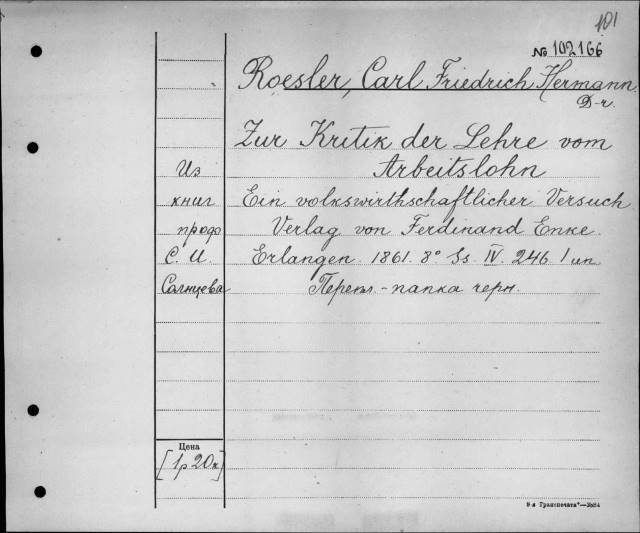 101
№ 102166
Roesler, Carl Friedrich Hermann
D-r.
Zur Kritik der Lehre vom
Arbeitslohn
Ein volkswirthschaftlicher Versuch
Verlag von Ferdinand Enke.
Erlangen. 1861. 8° Ss. IV. 246. 1 un.
Переп.-папка черн.
Из
книг
проф
С. И.
Солнцева
Цена
[1р 20к]